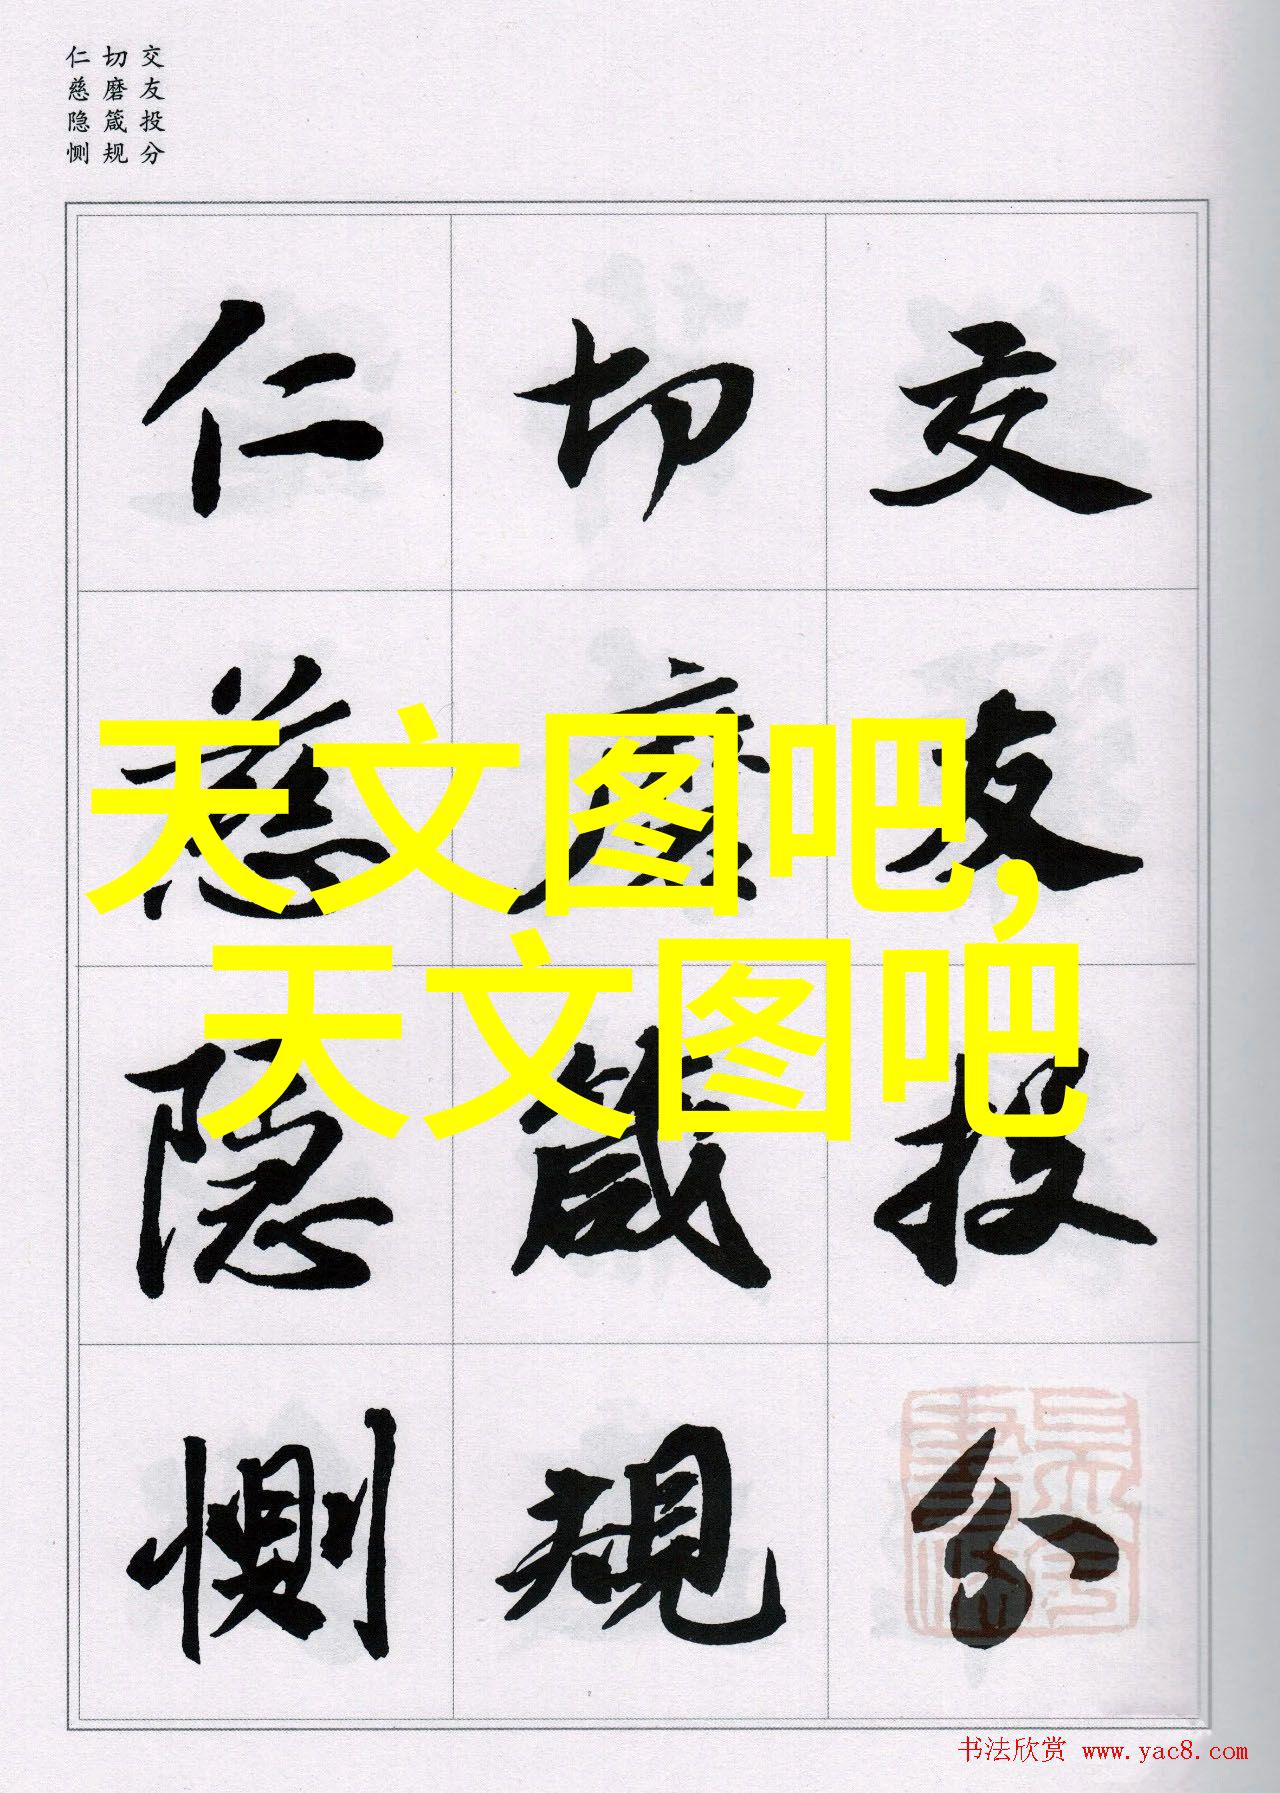 交友投分
切磨箴规
仁慈隐恻
交友投分
切磨箴規
仁慈隐恻
天文图吧,
天文图吧
书法欣赏 www.yac8.com